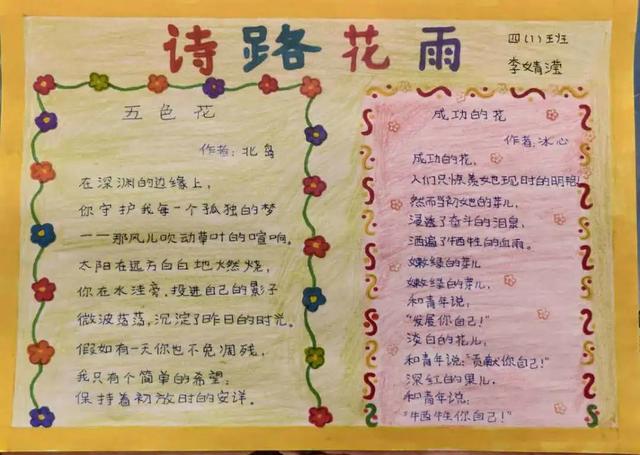 诗路花雨
四(1)班
李婧滢
五色花
作者:北岛
在深渊的边缘上,
你守护我每一个孤独的梦
——那风儿吹动草叶的喧响。
太阳在远方白白地燃烧,
你在水洼旁,投进自己的影子
微波荡荡,沉淀了昨日的时光。
假如有一天你也不免凋残,
我只有个简单的希望:
保持着初放时的安详。
成功的花
作者:冰心
成功的花,
人们只惊羡她现时的明艳!
然而当初她的芽儿,
浸透了奋斗的泪泉,
洒遍了牺牲的血雨。
嫩绿的芽儿
嫩绿的芽儿,
和青年说,
"发展你自己!"
淡白的花儿,
和青年说:"贡献你自己!"
深红的果儿,
和青年说:
"牺牲你自己!"